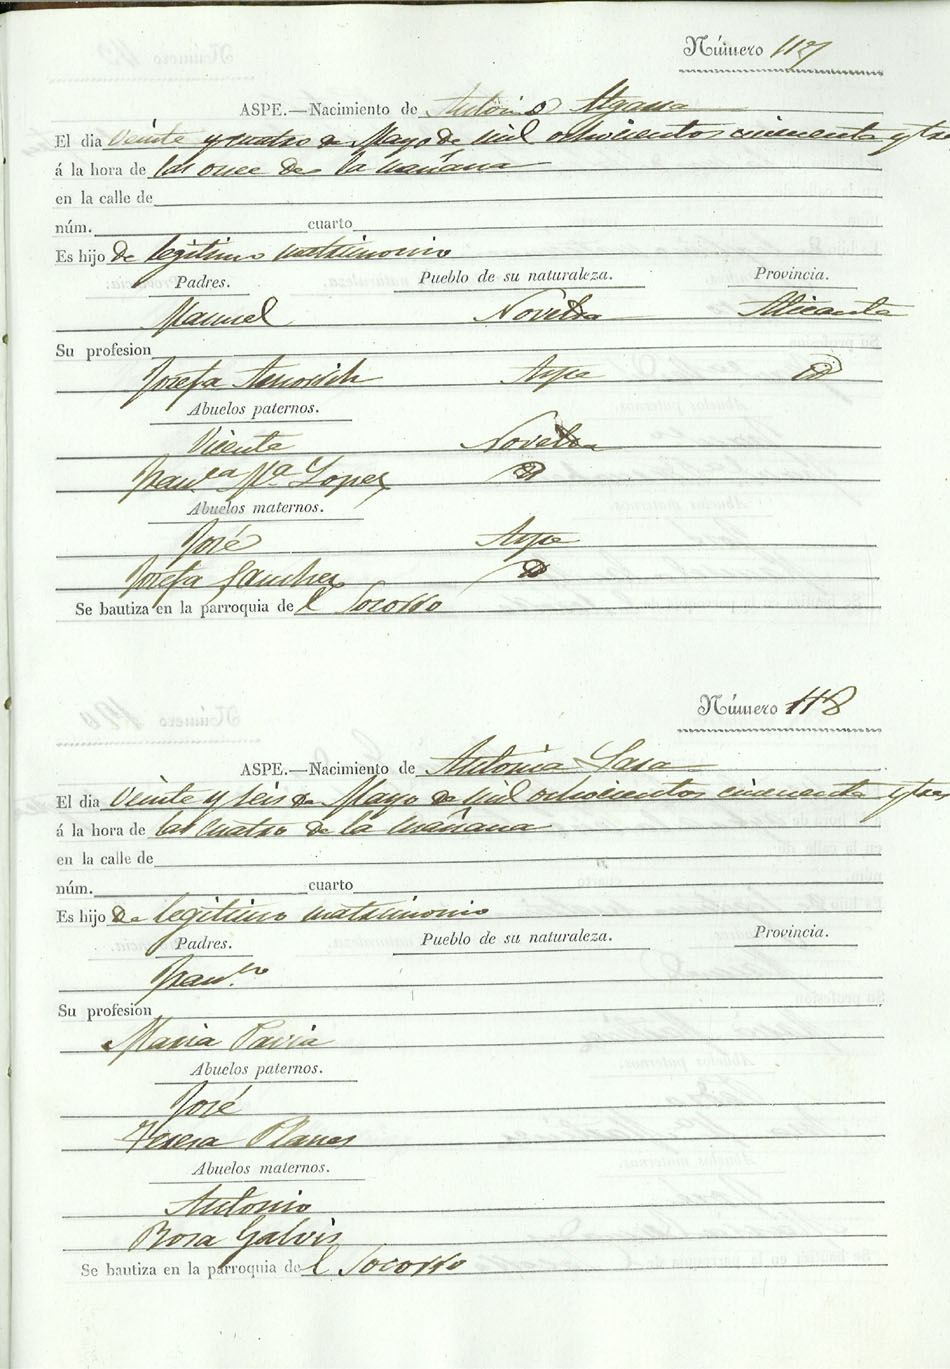 Número 117
ASPE.—Nacimiento de Antonio
El dia veinte y cuatro de Mayo de mil ochocientos cincuenta y tres
á la hora de las once de la mañana
en la calle de
núm. cuarto
Es hijo de legitimo matrimonio
Padres. Pueblo de su naturaleza. Provincia.
Manuel Novelda Alicante
Su profesion
Josefa Aspe
Abuelos paternos.
Vicente Novelda
Fran.ca M.a Lopez
Abuelos maternos.
José Aspe
Josefa Sanchez
Se bautiza en la parroquia de l Socorro
Número 118
ASPE.—Nacimiento de Antonia
El dia veinte y seis de Mayo de mil ochocientos cincuenta y tres
á la hora de las cuatro de la mañana
en la calle de
núm. cuarto
Es hijo de legitimo matrimonio
Padres. Pueblo de su naturaleza. Provincia.
Fran.co
Su profesion
Maria Pavia
Abuelos paternos.
José
Teresa Planes
Abuelos maternos.
Antonio
Rosa Galvis
Se bautiza en la parroquia de l Socorro